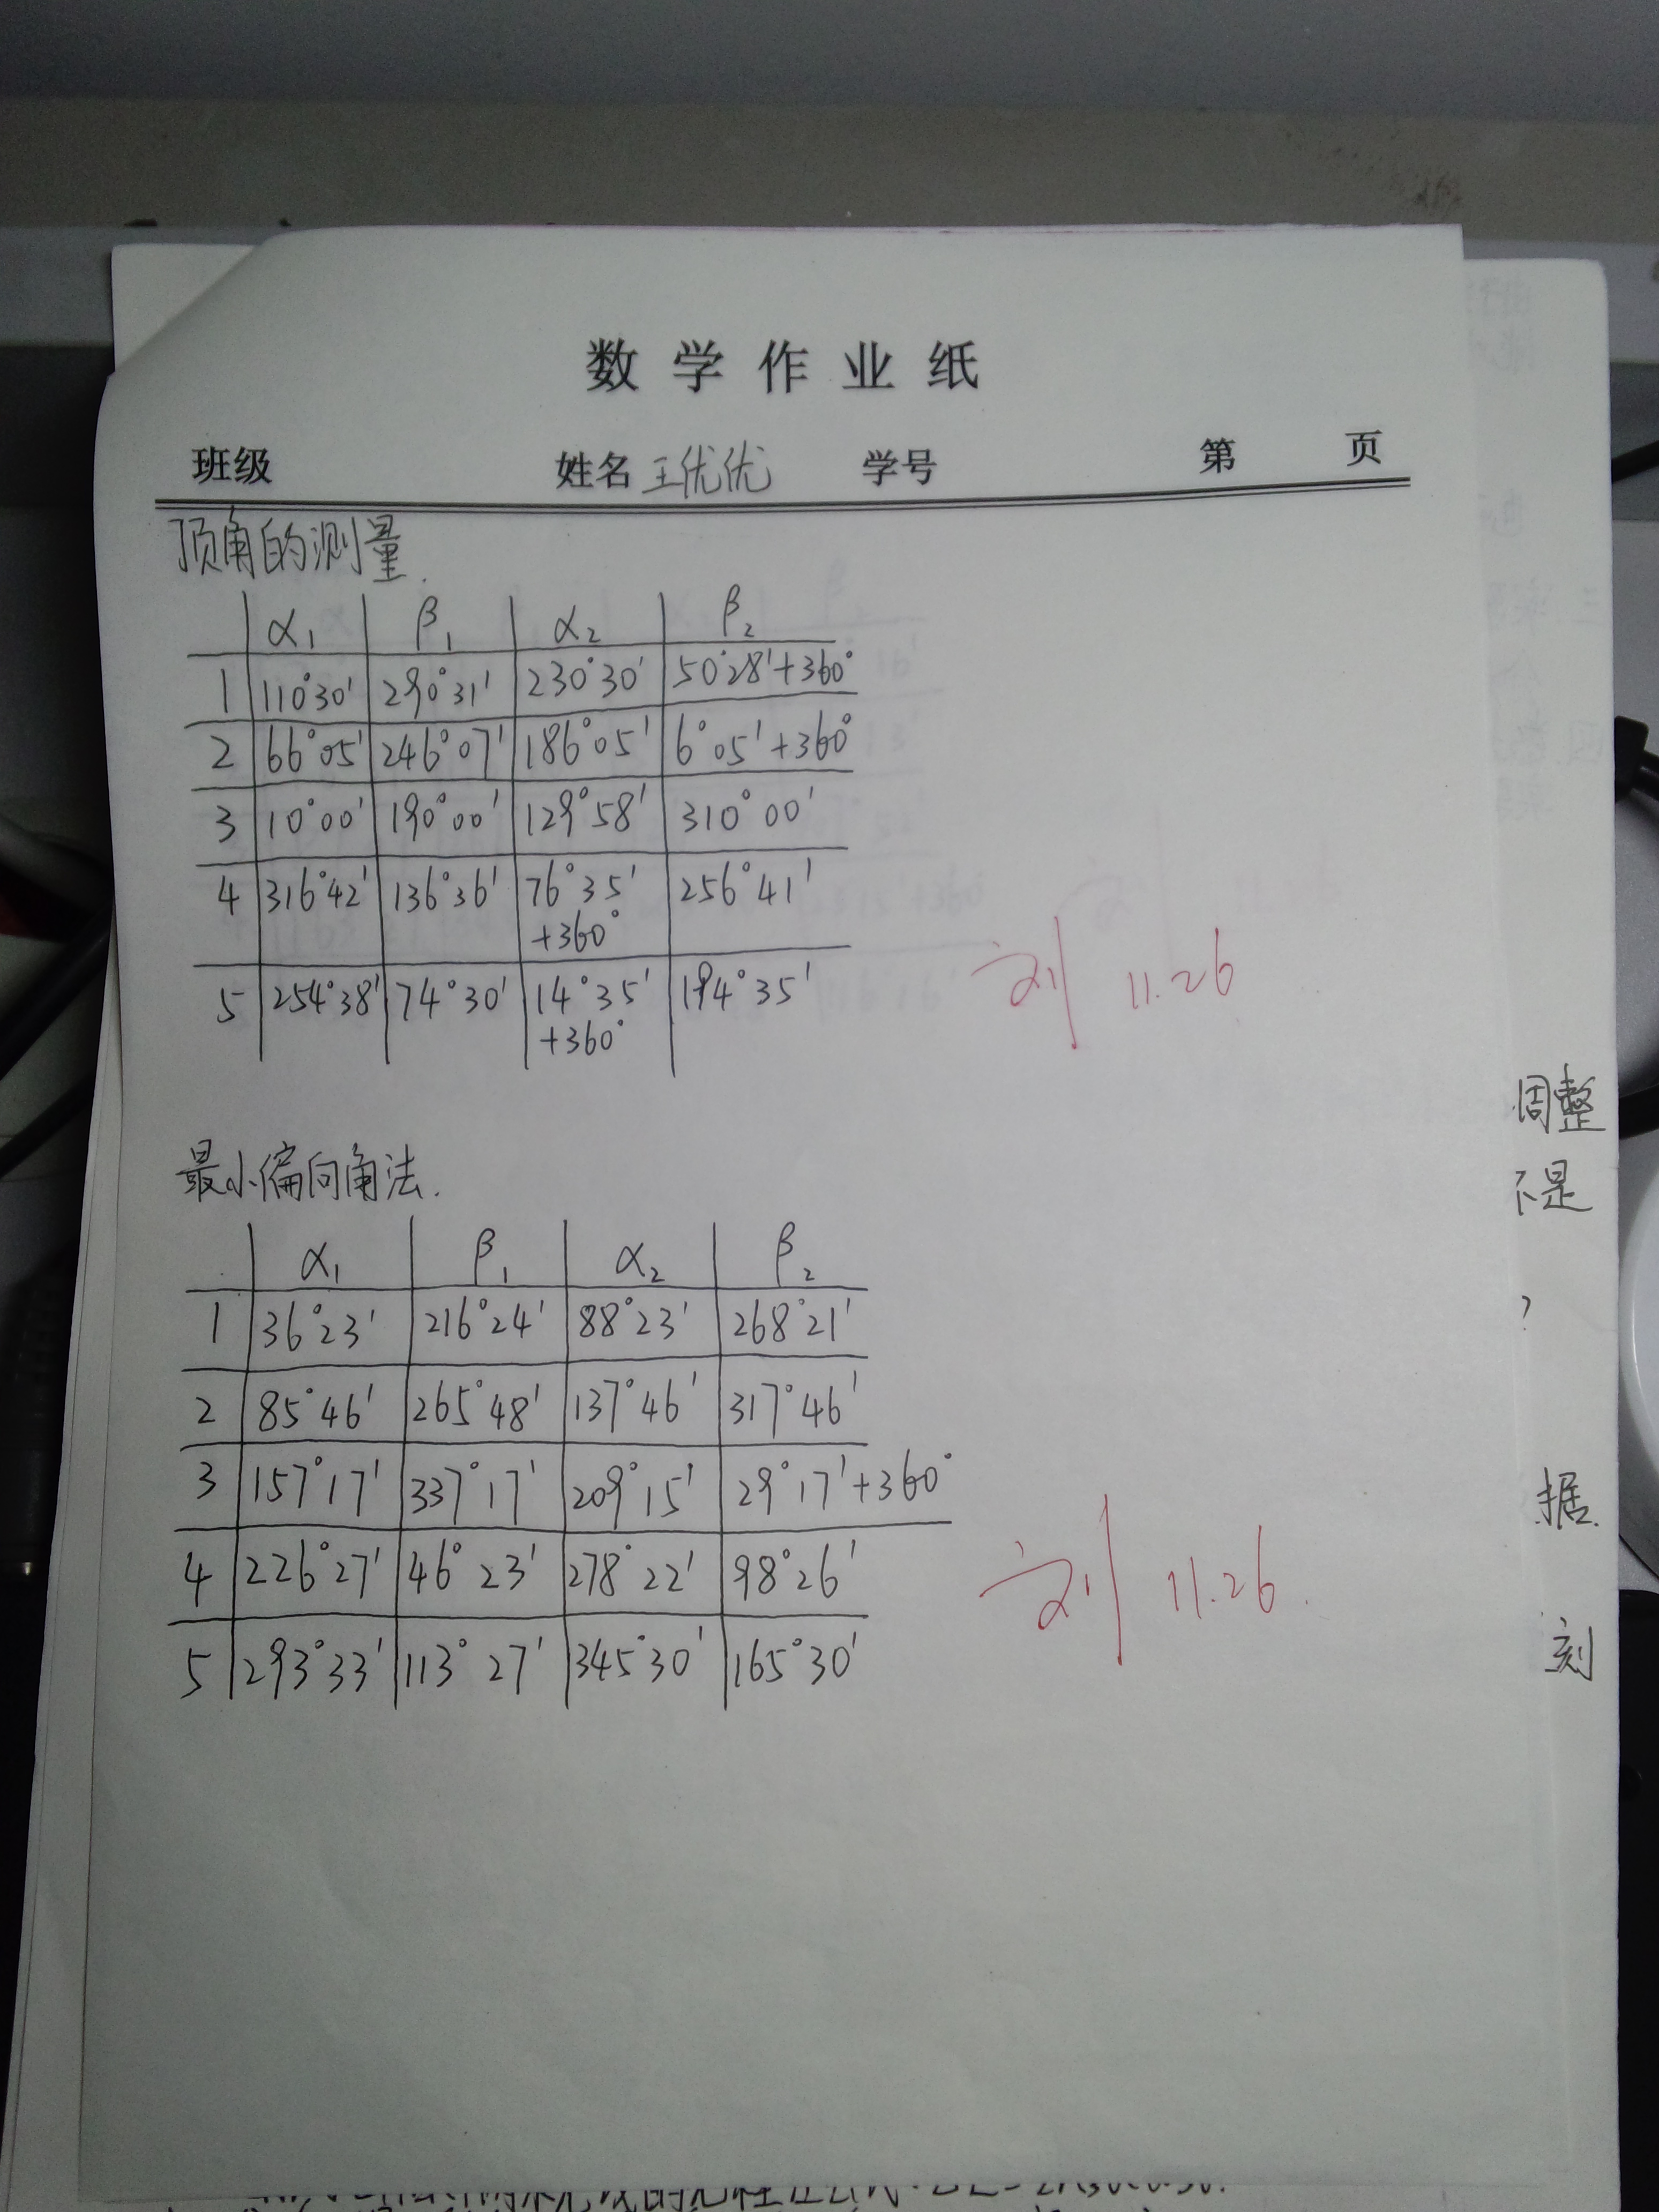 数学作业纸
班级 姓名 王优优 学号 第 页
顶角的测量.
α₁ β₁ α₂ β₂
1 110°30' 290°31' 230°30' 50°28'+360°
2 66°05' 246°07' 186°05' 6°05'+360°
3 10°00' 190°00' 129°58' 310°00'
4 316°42' 136°36' 76°35' 256°41'
+360°
5 254°38' 74°30' 14°35' 194°35'
+360°
刘 11.26
最小偏向角法.
α₁ β₁ α₂ β₂
1 36°23' 216°24' 88°23' 268°21'
2 85°46' 265°48' 137°46' 317°46'
3 157°17' 337°17' 209°15' 29°17'+360°
4 226°27' 46°23' 278°22' 98°26'
5 293°33' 113°27' 345°30' 165°30'
刘 11.26.
调整
不是
?
据.
刻